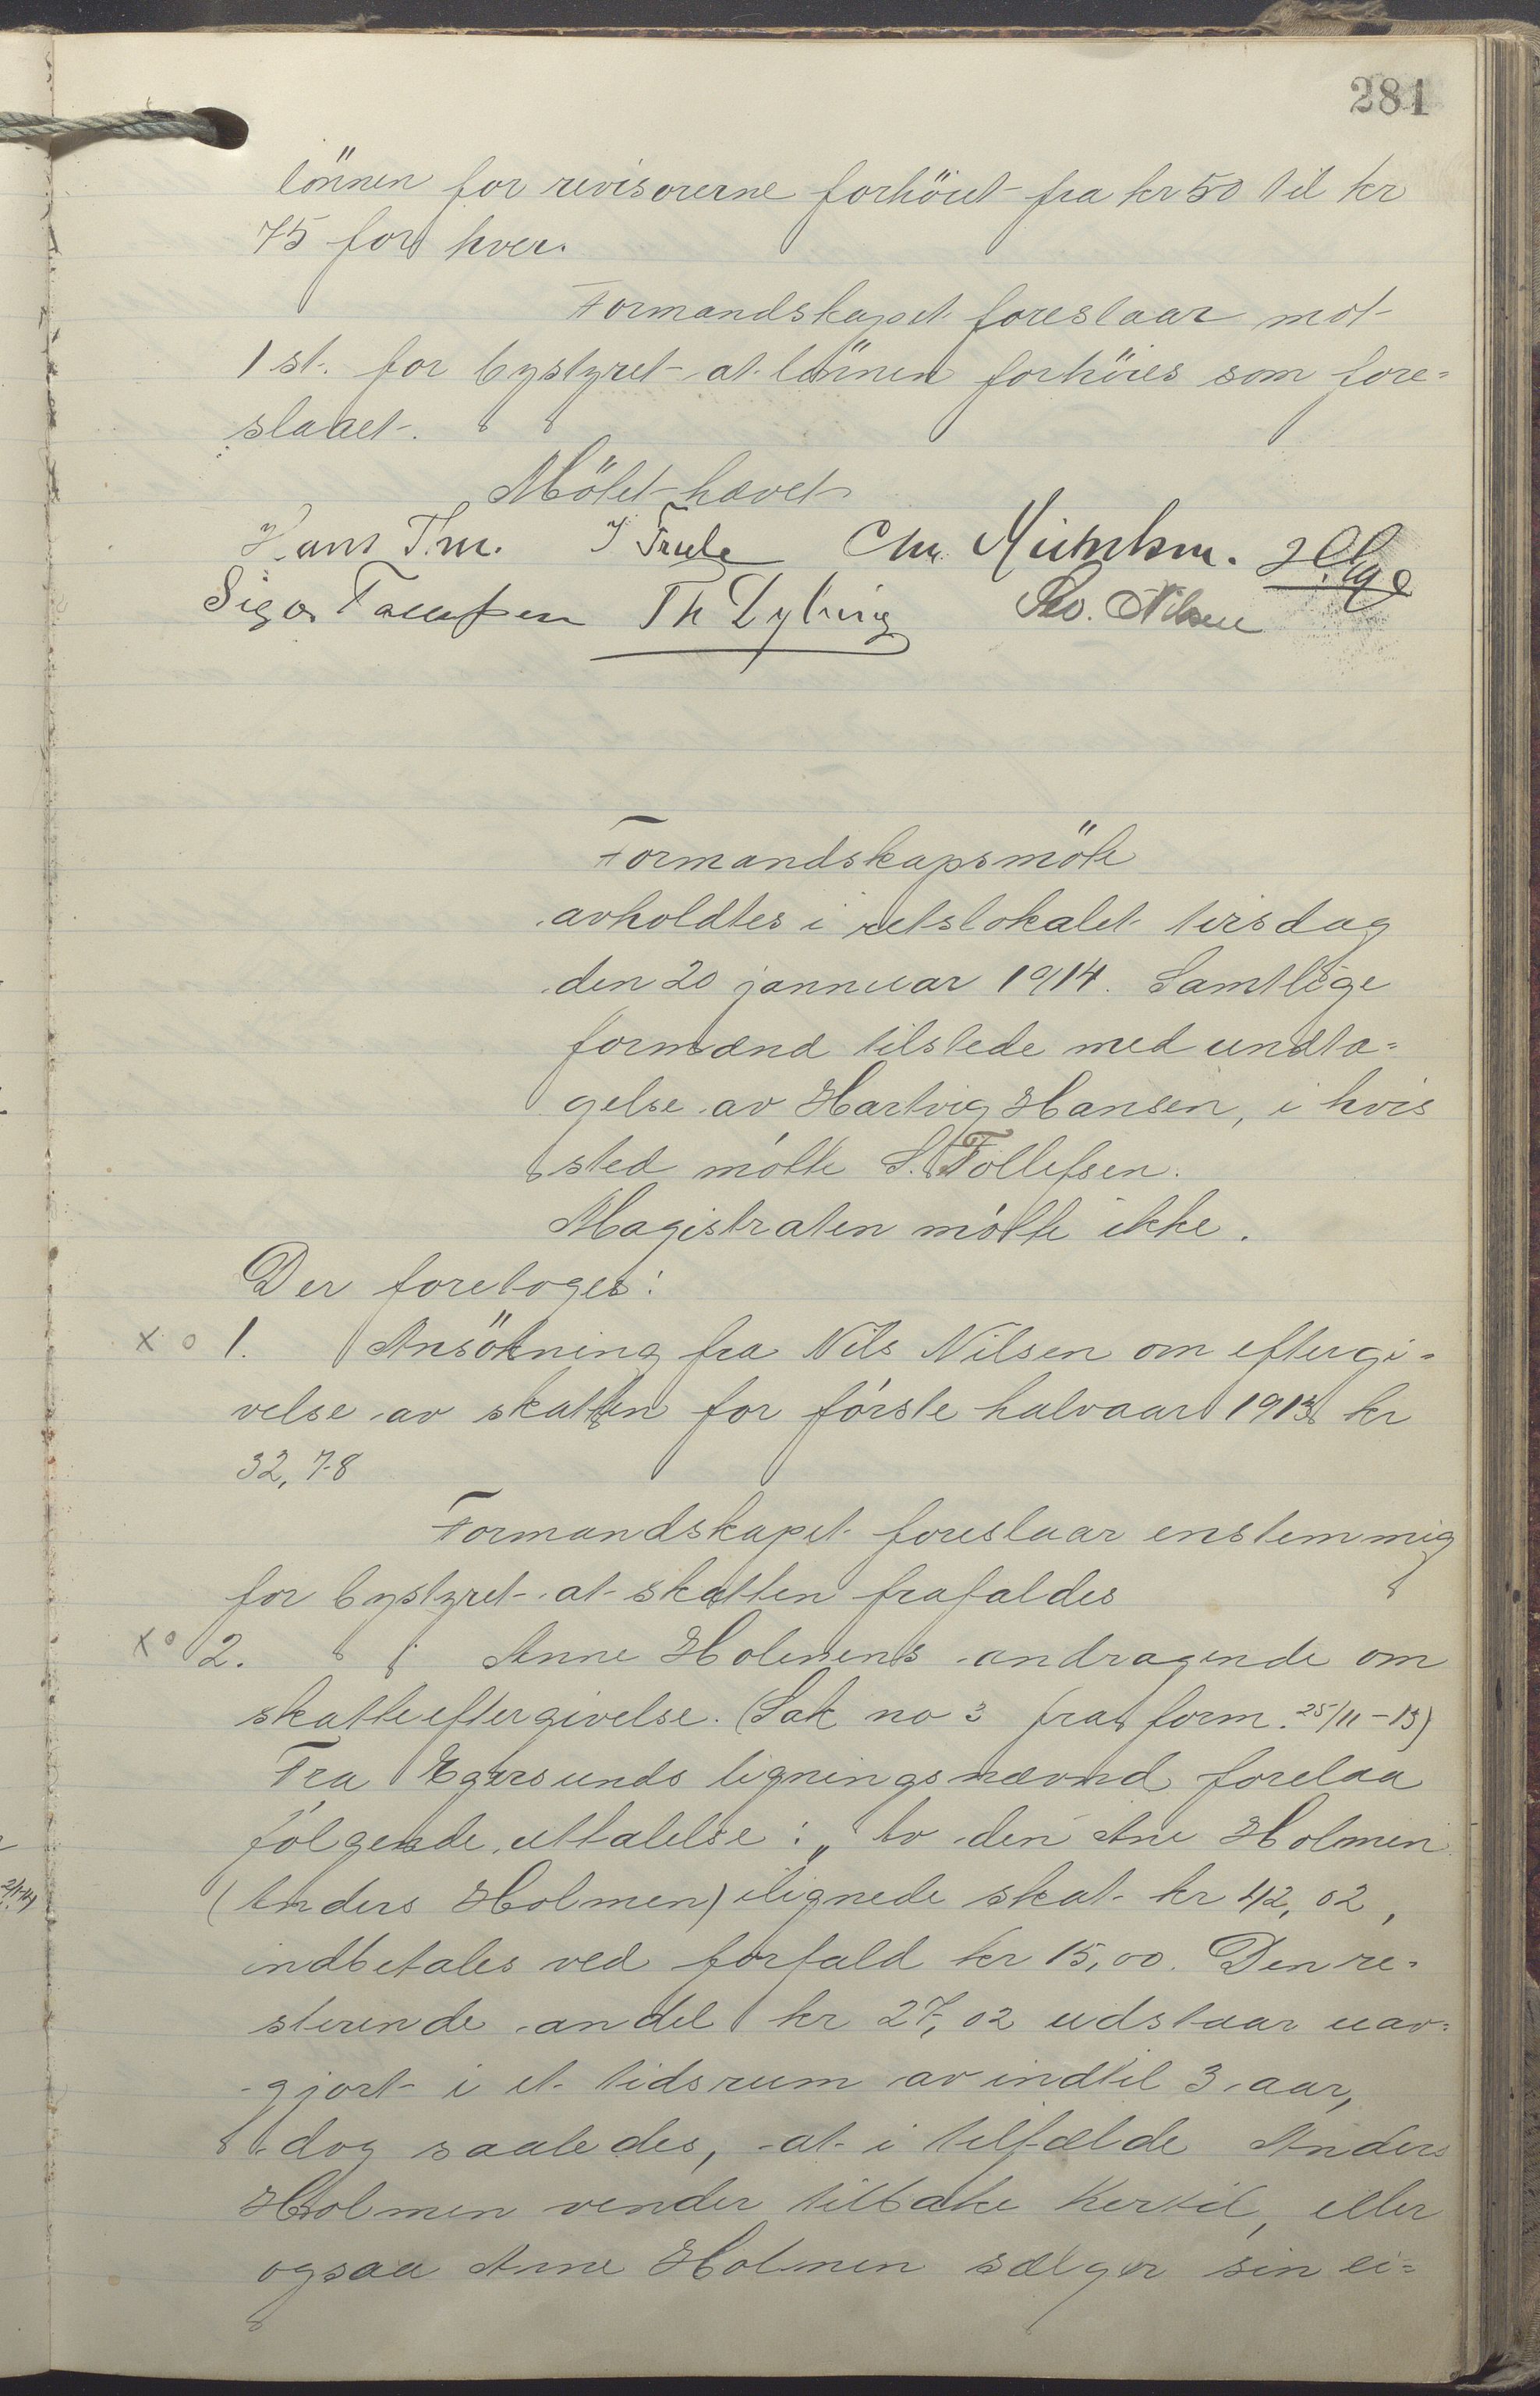 281
lönnen for revisorerne forhöiet fra kr 50 til kr
75 for hver.
Formandskapet foreslaar mot
1 st. for bystyret at lönnen forhöies som fore=
slaaet.
Mötet hævet
Hans Thu. J Frule Chr.
Sigv Tollefsen Th Dybing Nilsen
Formandskapsmöte
avholdtes i retslokalet tirsdag
den 20 jannuar 1914. Samtlige
formænd tilstede med undta=
gelse av Hartvig Hansen, i hvis
sted mötte S. Tollefsen.
Magistraten mötte ikke.
Der foretoges:
x o 1. Ansökning fra Nils Nilsen om eftergi=
velse av skatten for förste halvaar 1913 kr
32,78
Formandskapet foreslaar enstemmig
for bystyret at skatten frafaldes
x o 2. Anne Holmens andragende om
skatteeftergivelse. (Sak no 3 fra form. 25/11-13)
Fra Egersunds ligningsnævnd forelaa
fölgende uttalelse: „Av den Ane Holmen
(Anders Holmen) ilignede skat kr 42,02,
indbetales ved forfald kr 15,00. Den re=
sterende andel kr 27,02 udstaar uav=
gjort i et tidsrum av indtil 3 aar,
dog saaledes, at i tilfælde Anders
Holmen vender tilbake hertil, eller
ogsaa Anne Holmen sælger sin ei=